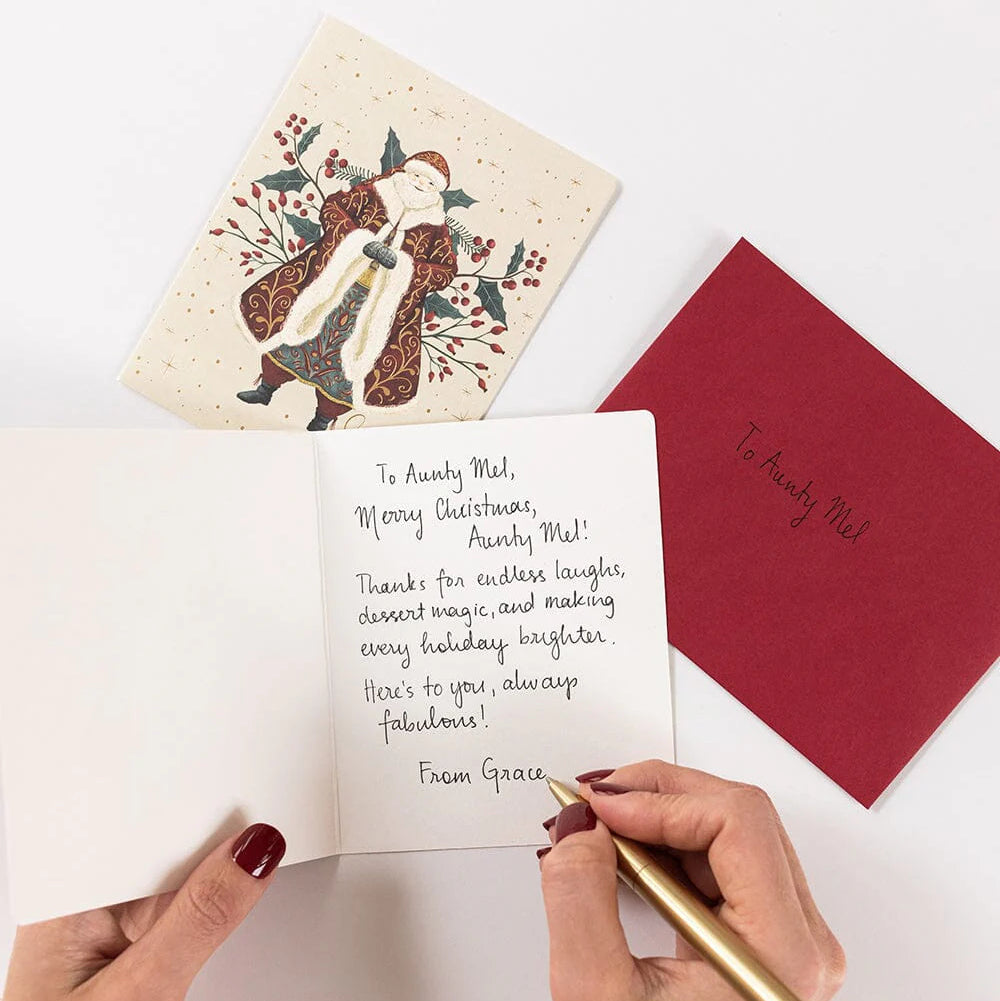 To Aunty Mel,
Merry Christmas,
Aunty Mel!
Thanks for endless laughs,
dessert magic, and making
every holiday brighter.
Here's to you, always
fabulous!
From Grace
To Aunty Mel